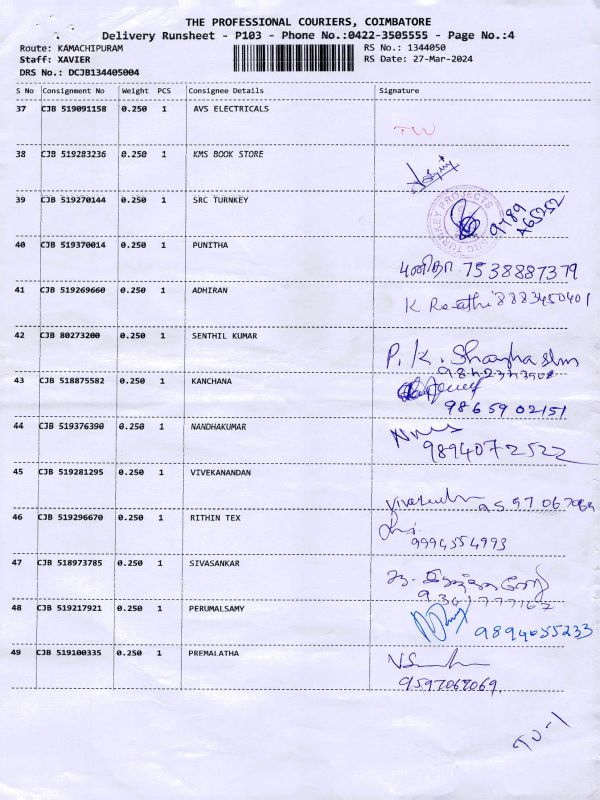 THE PROFESSIONAL COURIERS, COIMBATORE
Delivery Runsheet - P103 - Phone No.:0422-3505555 - Page No.:4
Route: KAMACHIPURAM RS No.: 1344050
Staff: XAVIER RS Date: 27-Mar-2024
DRS No.: DCJB134405004
S No Consignment No Weight PCS Consignee Details Signature
37 CJB 519091158 0.250 1 AVS ELECTRICALS
TW
38 CJB 519283236 0.250 1 KMS BOOK STORE
39 CJB 519270144 0.250 1 SRC TURNKEY
TURNKEY PROJECTS
9789
A65252
40 CJB 519370014 0.250 1 PUNITHA
புனிதா 7538887379
41 CJB 519269660 0.250 1 ADHIRAN
K 8883450401
42 CJB 80273200 0.250 1 SENTHIL KUMAR
P. K.
43 CJB 518875582 0.250 1 KANCHANA
9865902151
44 CJB 519376390 0.250 1 NANDHAKUMAR
9894072522
45 CJB 519281295 0.250 1 VIVEKANANDAN
46 CJB 519296670 0.250 1 RITHIN TEX
9994554993
47 CJB 518973785 0.250 1 SIVASANKAR
48 CJB 519217921 0.250 1 PERUMALSAMY
9894055233
49 CJB 519100335 0.250 1 PREMALATHA
9597067069
TW-1